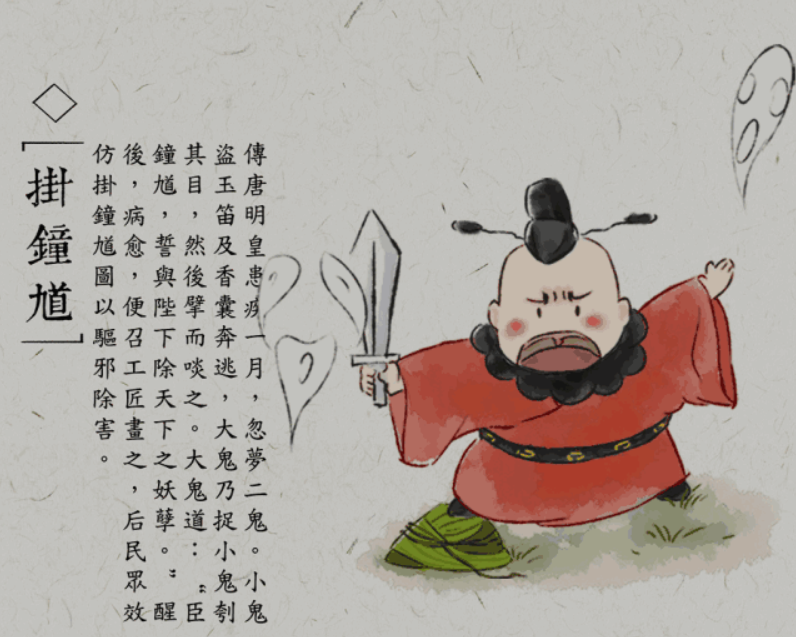 「掛鐘馗」
傳唐明皇患疾一月，忽夢二鬼。小鬼
盜玉笛及香囊奔逃，大鬼乃捉小鬼刳
其目，然後擘而啖之。大鬼道：“臣
鐘馗，誓與陛下除天下之妖孽。”醒
後，病愈，便召工匠畫之，后民眾效
仿掛鐘馗圖以驅邪除害。